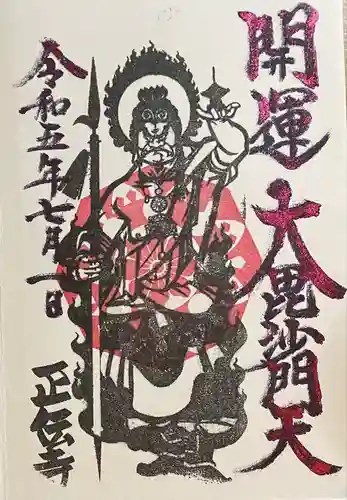 開運大毘沙門天
令和五年七月一日
正伝寺